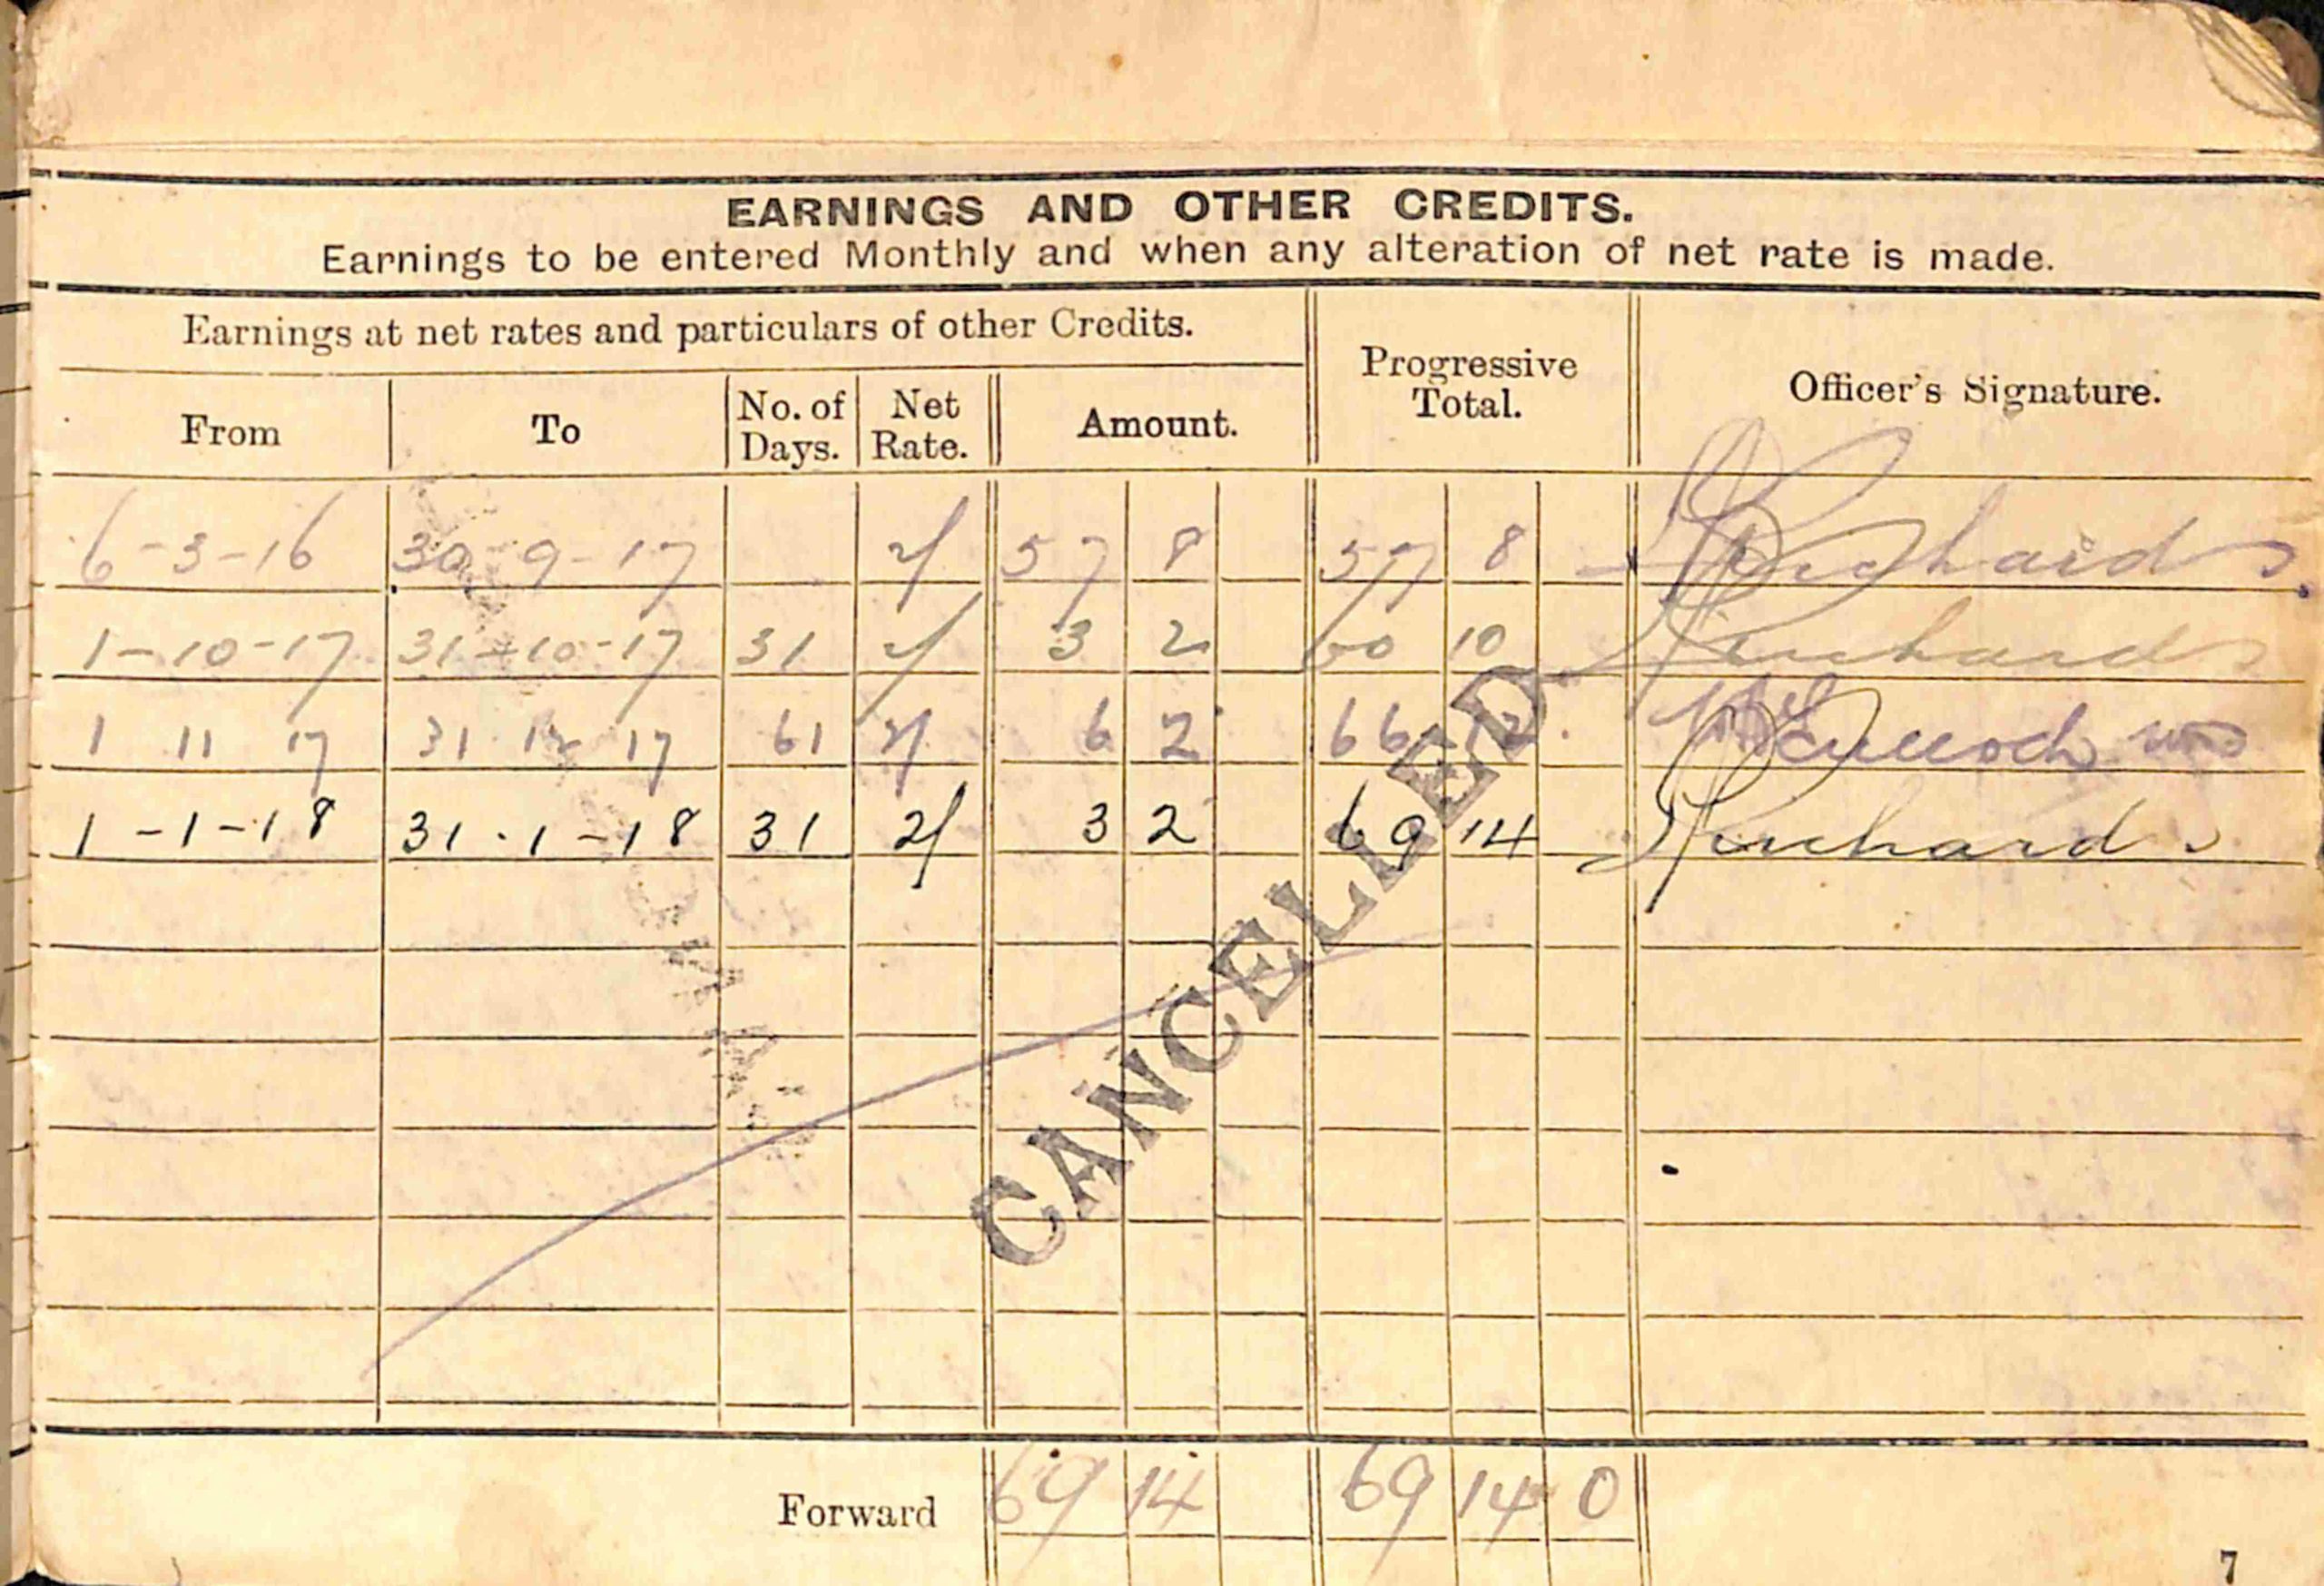 EARNINGS AND OTHER CREDITS.
Earnings to be entered Monthly and when any alteration of net rate is made.
Earnings at net rates and particulars of other Credits.
Progressive Total.
Officer's Signature.
From To No. of Days. Net Rate. Amount.
6-3-16 30-9-17 2/ 57 8 57 8 Prichard
1-10-17 31-10-17 31 2/ 3 2 60 10 Prichard
1 11 17 31 12 17 61 2/ 6 2 66 12 McCulloch
1-1-18 31-1-18 31 2/ 3 2 69 14 Prichard
CANCELLED
Forward 69 14 69 14 0
7